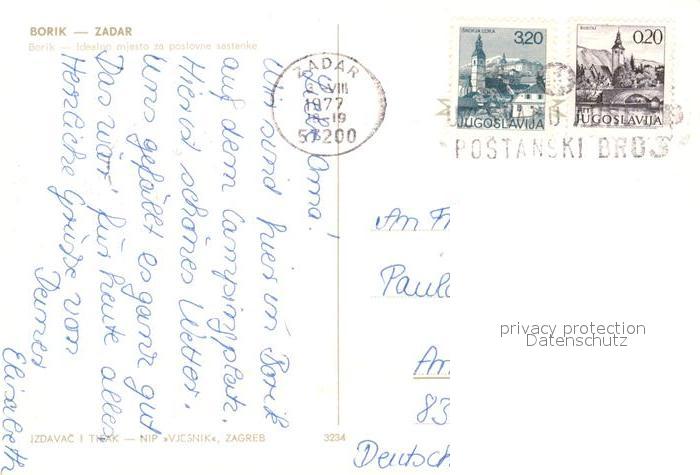 BORIK — ZADAR
Borik — Idealno mjesto za poslovne sastanke
Liebe Oma!
Wir sind hier in Borik
auf dem Campingplatz.
Hier ist schönes Wetter.
Uns gefällt es ganz gut
Das wär' für heute alles
Herzliche Grüße von
Deiner
Elisabeth
ZADAR
VIII
1977
-19
57200
ŠKOFJA LOKA
3,20
JUGOSLAVIJA
BOHINJ
0.20
JUGOSLAVIJA
POŠTANSKI BROJ
An Fr
Paul
Am
83
Deutsch
privacy protection
Datenschutz
IZDAVAČ I TISAK — NIP »VJESNIK«, ZAGREB 3234